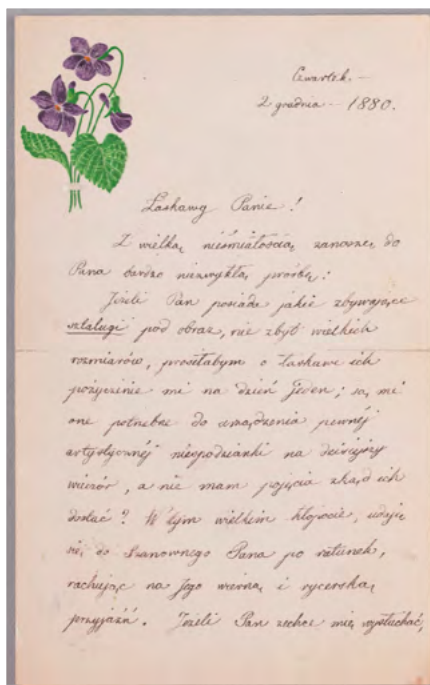 Czwartek. —
2 grudnia — 1880.
Łaskawy Panie!
Z wielką nieśmiałością zanoszę do
Pana bardzo niezwykłą prośbę:
Jeżeli Pan posiada jakie zbywające
sztalugi pod obraz, nie zbyt wielkich
rozmiarów, prosiłabym o łaskawe ich
pożyczenie mi na dzień jeden; są mi
one potrzebne do urządzenia pewnéj
artystycznéj niespodzianki na dzisiejszy
wieczór, a nie mam pojęcia zkąd ich
dostać? W tym wielkim kłopocie, udaję
się do Szanownego Pana po ratunek,
rachując na Jego wierną i rycerską
przyjaźń. Jeżeli Pan zechce mię wysłuchać,